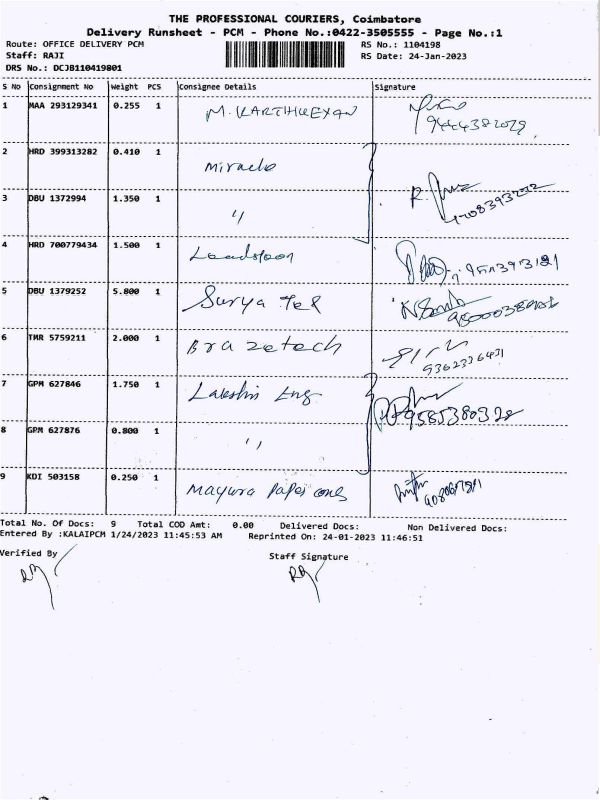 THE PROFESSIONAL COURIERS, Coimbatore
Delivery Runsheet - PCM - Phone No.:0422-3505555 - Page No.:1
Route: OFFICE DELIVERY PCM RS No.: 1104198
Staff: RAJI RS Date: 24-Jan-2023
DRS No.: DCJB110419801
S No Consignment No Weight PCS Consignee Details Signature
1 MAA 293129341 0.255 1 M.KARTHIKEYAN 9444382029
2 HRD 399313282 0.410 1 Miracle
3 DBU 1372994 1.350 1 "
4 HRD 700779434 1.500 1
5 DBU 1379252 5.800 1 Surya Tek
6 TMR 5759211 2.000 1 Brazetech 9362336431
7 GPM 627846 1.750 1 Lakshmi Eng 9585380328
8 GPM 627876 0.800 1 "
9 KDI 503158 0.250 1 Mayura Paper cones
Total No. Of Docs: 9 Total COD Amt: 0.00 Delivered Docs: Non Delivered Docs:
Entered By :KALAIPCM 1/24/2023 11:45:53 AM Reprinted On: 24-01-2023 11:46:51
Verified By Staff Signature